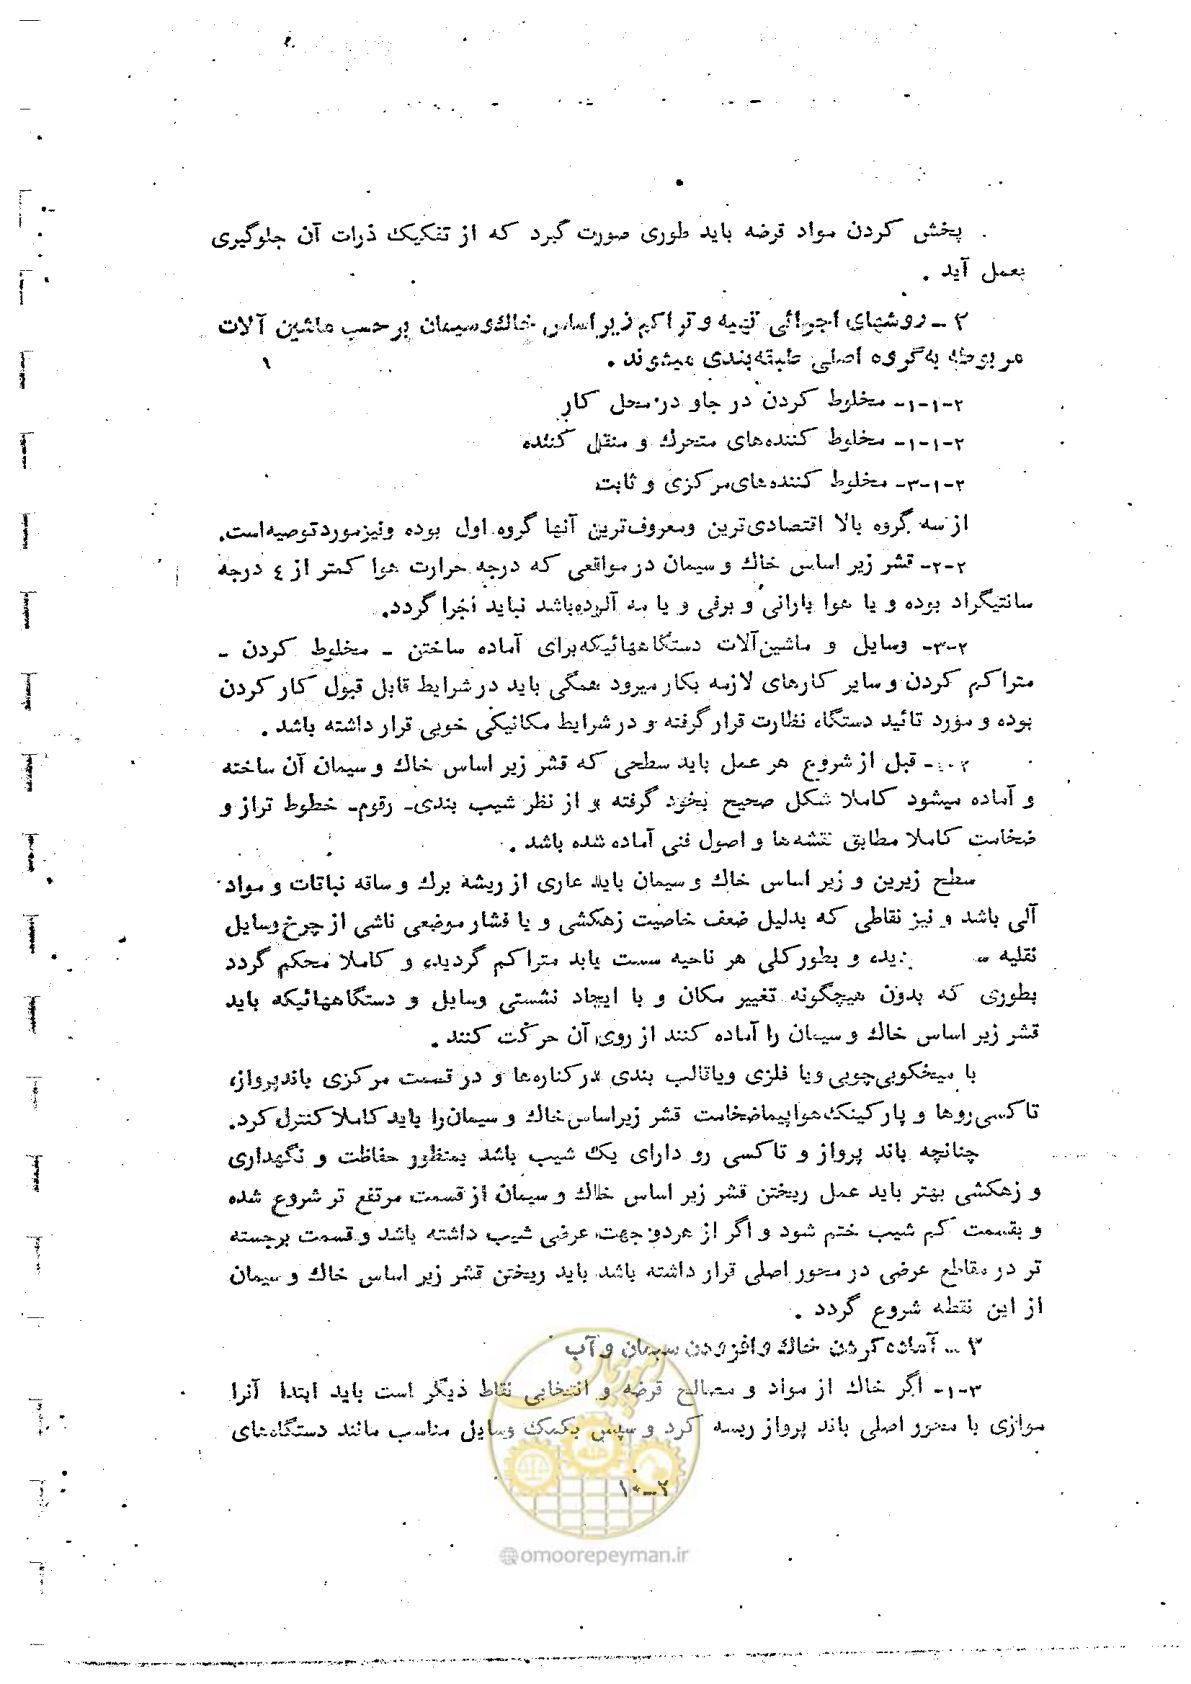 پخش کردن مواد قرضه باید طوری صورت گیرد که از تفکیک ذرات آن جلوگیری
بعمل آید .
۲ ـ روشهای اجرائی تهیه و تراکم زیر اساس خاك و سیمان بر حسب ماشین آلات
مربوطه به گروه اصلی طبقه‌بندی میشوند .
۲-۱-۱- مخلوط کردن در جا و در محل کار
۲-۱-۱- مخلوط کننده‌های متحرك و منقل کننده
۲-۱-۳- مخلوط کننده‌های مرکزی و ثابت
از سه گروه بالا اقتصادی‌ترین و معروف‌ترین آنها گروه اول بوده و نیز مورد توصیه است.
۲-۲- قشر زیر اساس خاك و سیمان در مواقعی که درجه حرارت هوا کمتر از ٤ درجه
سانتیگراد بوده و یا هوا بارانی و برفی و یا مه آلوده باشد نباید اجرا گردد.
۲-۳- وسایل و ماشین‌آلات دستگاههائیکه برای آماده ساختن ـ مخلوط کردن ـ
متراکم کردن و سایر کارهای لازمه بکار میرود همگی باید در شرایط قابل قبول کار کردن
بوده و مورد تائید دستگاه نظارت قرار گرفته و در شرایط مکانیکی خوبی قرار داشته باشد .
قبل از شروع هر عمل باید سطحی که قشر زیر اساس خاك و سیمان آن ساخته
و آماده میشود کاملا شکل صحیح بخود گرفته و از نظر شیب بندی- رقوم- خطوط تراز و
ضخامت کاملا مطابق نقشه‌ها و اصول فنی آماده شده باشد .
سطح زیرین و زیر اساس خاك و سیمان باید عاری از ریشه برك و ساقه نباتات و مواد
آلی باشد و نیز نقاطی که بدلیل ضعف خاصیت زهکشی و یا فشار موضعی ناشی از چرخ وسایل
نقلیه و بطور کلی هر ناحیه سست باید متراکم گردیده و کاملا محکم گردد
بطوری که بدون هیچگونه تغییر مکان و یا ایجاد نشستی وسایل و دستگاههائیکه باید
قشر زیر اساس خاك و سیمان را آماده کنند از روی آن حرکت کنند .
با میخکوبی چوبی ویا فلزی ویاقالب بندی در کناره‌ها و در قسمت مرکزی باند پرواز،
تاکسی‌روها و پارکینک هواپیما ضخامت قشر زیر اساس خاك و سیمان را باید کاملا کنترل کرد.
چنانچه باند پرواز و تاکسی رو دارای یك شیب باشد بمنظور حفاظت و نگهداری
و زهکشی بهتر باید عمل ریختن قشر زیر اساس خاك و سیمان از قسمت مرتفع تر شروع شده
و بقسمت کم شیب ختم شود و اگر از هر دو جهت عرضی شیب داشته باشد و قسمت برجسته
تر در مقاطع عرضی در محور اصلی قرار داشته باشد باید ریختن قشر زیر اساس خاك و سیمان
از این نقطه شروع گردد .
۳ ـ آماده کردن خاك و افزودن سیمان و آب
۳-۱- اگر خاك از مواد و مصالح قرضه و انتخابی نقاط دیگر است باید ابتدا آنرا
موازی با محور اصلی باند پرواز ریسه کرد و سپس بکمك وسایل مناسب مانند دستگاه‌های
۱۰-۲
@omoorepeyman.ir